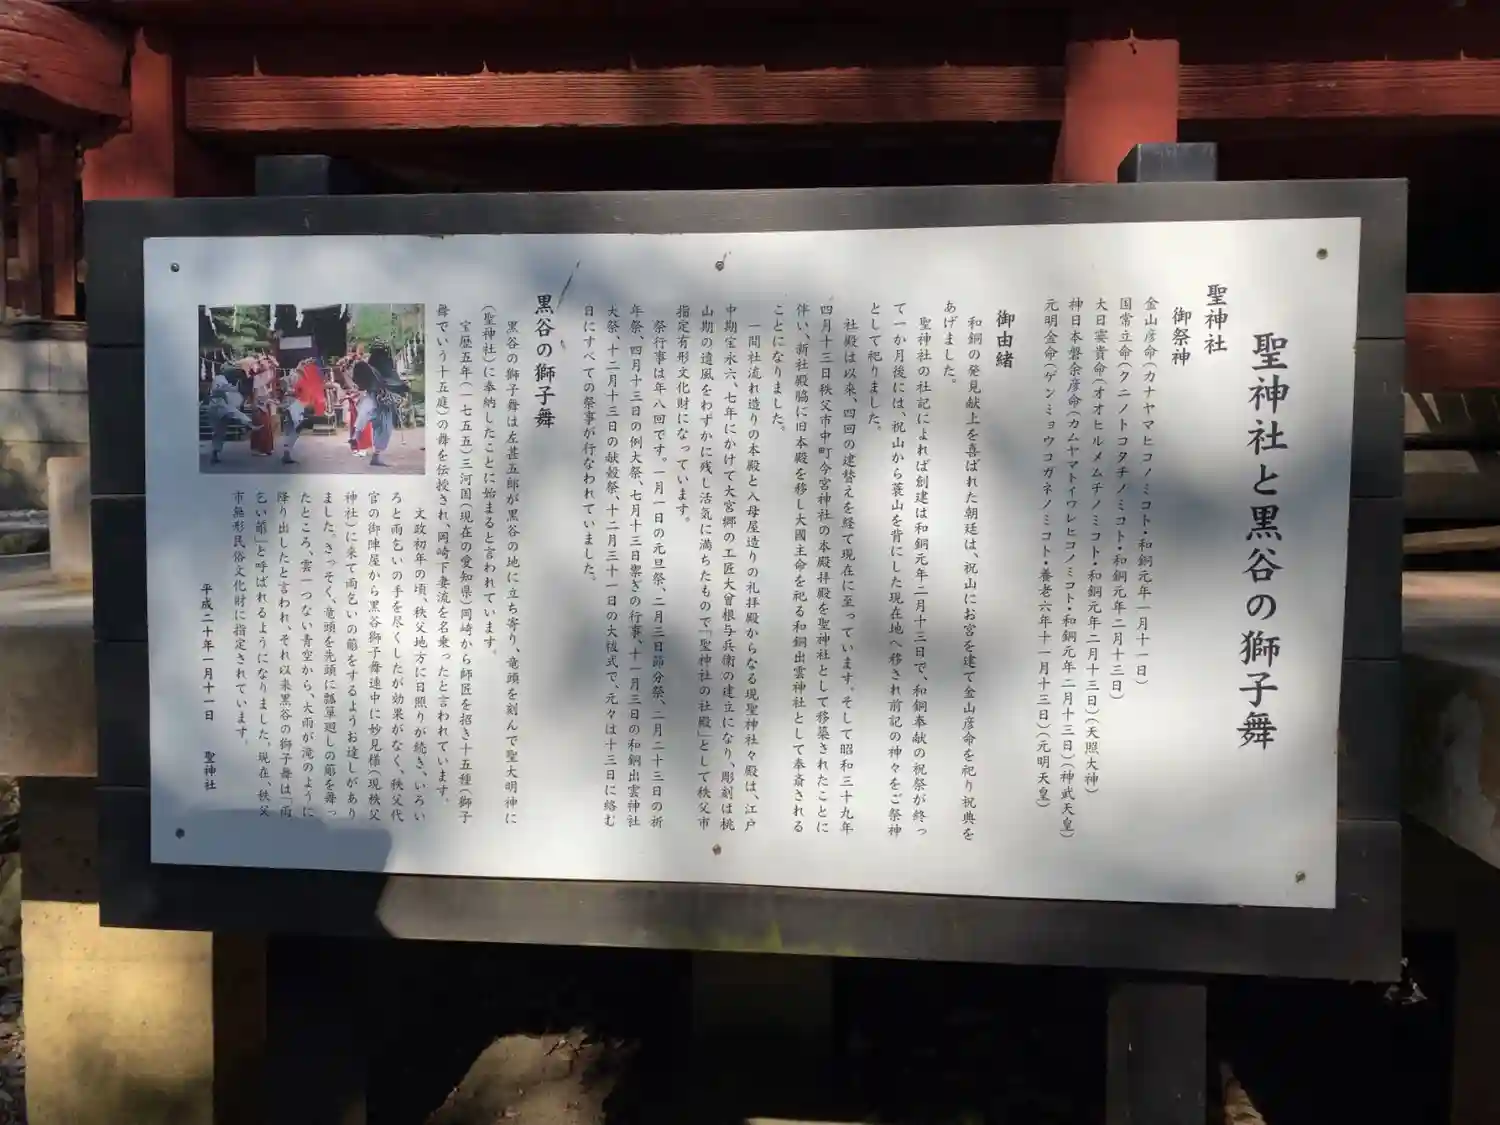 聖神社と黒谷の獅子舞
聖神社
御祭神
金山彦命(カナヤマヒコノミコト・和銅元年一月十一日)
国常立命(クニノトコタチノミコト・和銅元年二月十三日)
大日孁貴命(オオヒルメムチノミコト・和銅元年二月十三日)(天照大神)
神日本磐余彦命(カムヤマトイワレヒコノミコト・和銅元年二月十三日)(神武天皇)
元明金命(ゲンミョウコガネノミコト・養老六年十一月十三日)(元明天皇)
御由緒
和銅の発見献上を喜ばれた朝廷は、祝山にお宮を建て金山彦命を祀り祝典を
あげました。
聖神社の社記によれば創建は和銅元年二月十三日で、和銅奉献の祝祭が終っ
て一か月後には、祝山から蓑山を背にした現在地へ移され前記の神々をご祭神
として祀りました。
社殿は以来、四回の建替えを経て現在に至っています。そして昭和三十九年
四月十三日秩父市中町今宮神社の本殿拝殿を聖神社として移築されたことに
伴い、新社殿脇に旧本殿を移し大國主命を祀る和銅出雲神社として奉斎される
ことになりました。
一間社流れ造りの本殿と入母屋造りの礼拝殿からなる現聖神社々殿は、江戸
中期宝永六、七年にかけて大宮郷の工匠大曽根与兵衛の建立になり、彫刻は桃
山期の遺風をわずかに残し活気に満ちたもので「聖神社の社殿」として秩父市
指定有形文化財になっています。
祭行事は年八回です。一月一日の元旦祭、二月三日節分祭、二月二十三日の祈
年祭、四月十三日の例大祭、七月十三日禦ぎの行事、十一月三日の和銅出雲神社
大祭、十二月十三日の献穀祭、十二月三十一日の大祓式で、元々は十三日に絡む
日にすべての祭事が行なわれていました。
黒谷の獅子舞
黒谷の獅子舞は左甚五郎が黒谷の地に立ち寄り、竜頭を刻んで聖大明神に
(聖神社)に奉納したことに始まると言われています。
宝歴五年(一七五五)三河国(現在の愛知県)岡崎から師匠を招き十五種(獅子
舞でいう十五庭)の舞を伝授され、岡崎下妻流を名乗ったと言われています。
文政初年の頃、秩父地方に日照りが続き、いろい
ろと雨乞いの手を尽くしたが効果がなく、秩父代
官の御陣屋から黒谷獅子舞連中に妙見様(現秩父
神社)に来て雨乞いの簓をするようお達しがあり
ました。さっそく、竜頭を先頭に瓢箪廻しの簓を舞っ
たところ、雲一つない青空から、大雨が滝のように
降り出したと言われ、それ以来黒谷の獅子舞は「雨
乞い簓」と呼ばれるようになりました。現在、秩父
市無形民俗文化財に指定されています。
平成二十年一月十一日 聖神社